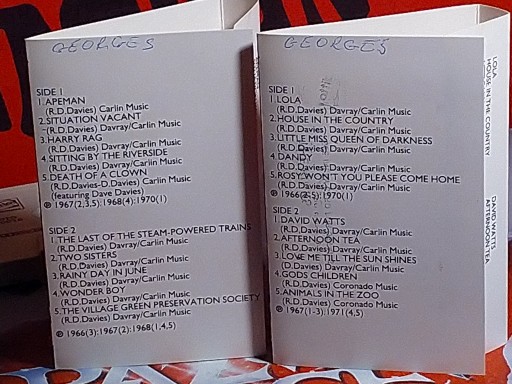 GEORGES
SIDE 1
1. APEMAN
(R.D. Davies) Carlin Music
2. SITUATION VACANT
(R.D. Davies) Davray/Carlin Music
3. HARRY RAG
(R.D. Davies) Davray/Carlin Music
4. SITTING BY THE RIVERSIDE
(R.D. Davies) Davray/Carlin Music
5. DEATH OF A CLOWN
(R.D. Davies-D. Davies) Carlin Music
(featuring Dave Davies)
℗ 1967(2,3,5):1968(4):1970(1)
SIDE 2
1. THE LAST OF THE STEAM-POWERED TRAINS
(R.D. Davies) Davray/Carlin Music
2. TWO SISTERS
(R.D. Davies) Davray/Carlin Music
3. RAINY DAY IN JUNE
(R.D. Davies) Davray/Carlin Music
4. WONDER BOY
(R.D. Davies) Davray/Carlin Music
5. THE VILLAGE GREEN PRESERVATION SOCIETY
(R.D. Davies) Davray/Carlin Music
℗ 1966(3):1967(2):1968(1,4,5)
GEORGES
SIDE 1
1. LOLA
(R.D. Davies) Davray/Carlin Music
2. HOUSE IN THE COUNTRY
(R.D. Davies) Davray/Carlin Music
3. LITTLE MISS QUEEN OF DARKNESS
(R.D. Davies) Davray/Carlin Music
4. DANDY
(R.D. Davies) Davray/Carlin Music
5. ROSY, WON'T YOU PLEASE COME HOME
(R.D. Davies) Davray/Carlin Music
℗ 1966(2-5):1970(1)
SIDE 2
1. DAVID WATTS
(R.D. Davies) Davray/Carlin Music
2. AFTERNOON TEA
(R.D. Davies) Davray/Carlin Music
3. LOVE ME TILL THE SUN SHINES
(D. Davies) Davray/Carlin Music
4. GODS CHILDREN
(R.D. Davies) Coronado Music
5. ANIMALS IN THE ZOO
(R.D. Davies) Coronado Music
℗ 1967(1-3):1971(4,5)
LOLA
HOUSE IN THE COUNTRY
DAVID WATTS
AFTERNOON TEA